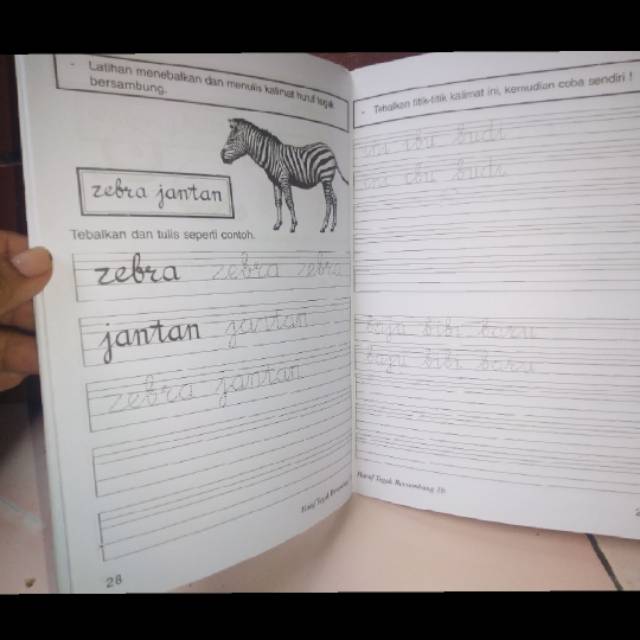 - Latihan menebalkan dan menulis kalimat huruf tegak
bersambung.
zebra jantan
Tebalkan dan tulis seperti contoh.
zebra zebra zebra
jantan jantan
zebra jantan
Huruf Tegak
28
- Tebalkan titik-titik kalimat ini, kemudian coba sendiri !
ibu budi
ibu budi
bibi baru
bibi baru
Huruf Tegak Bersambung 1b